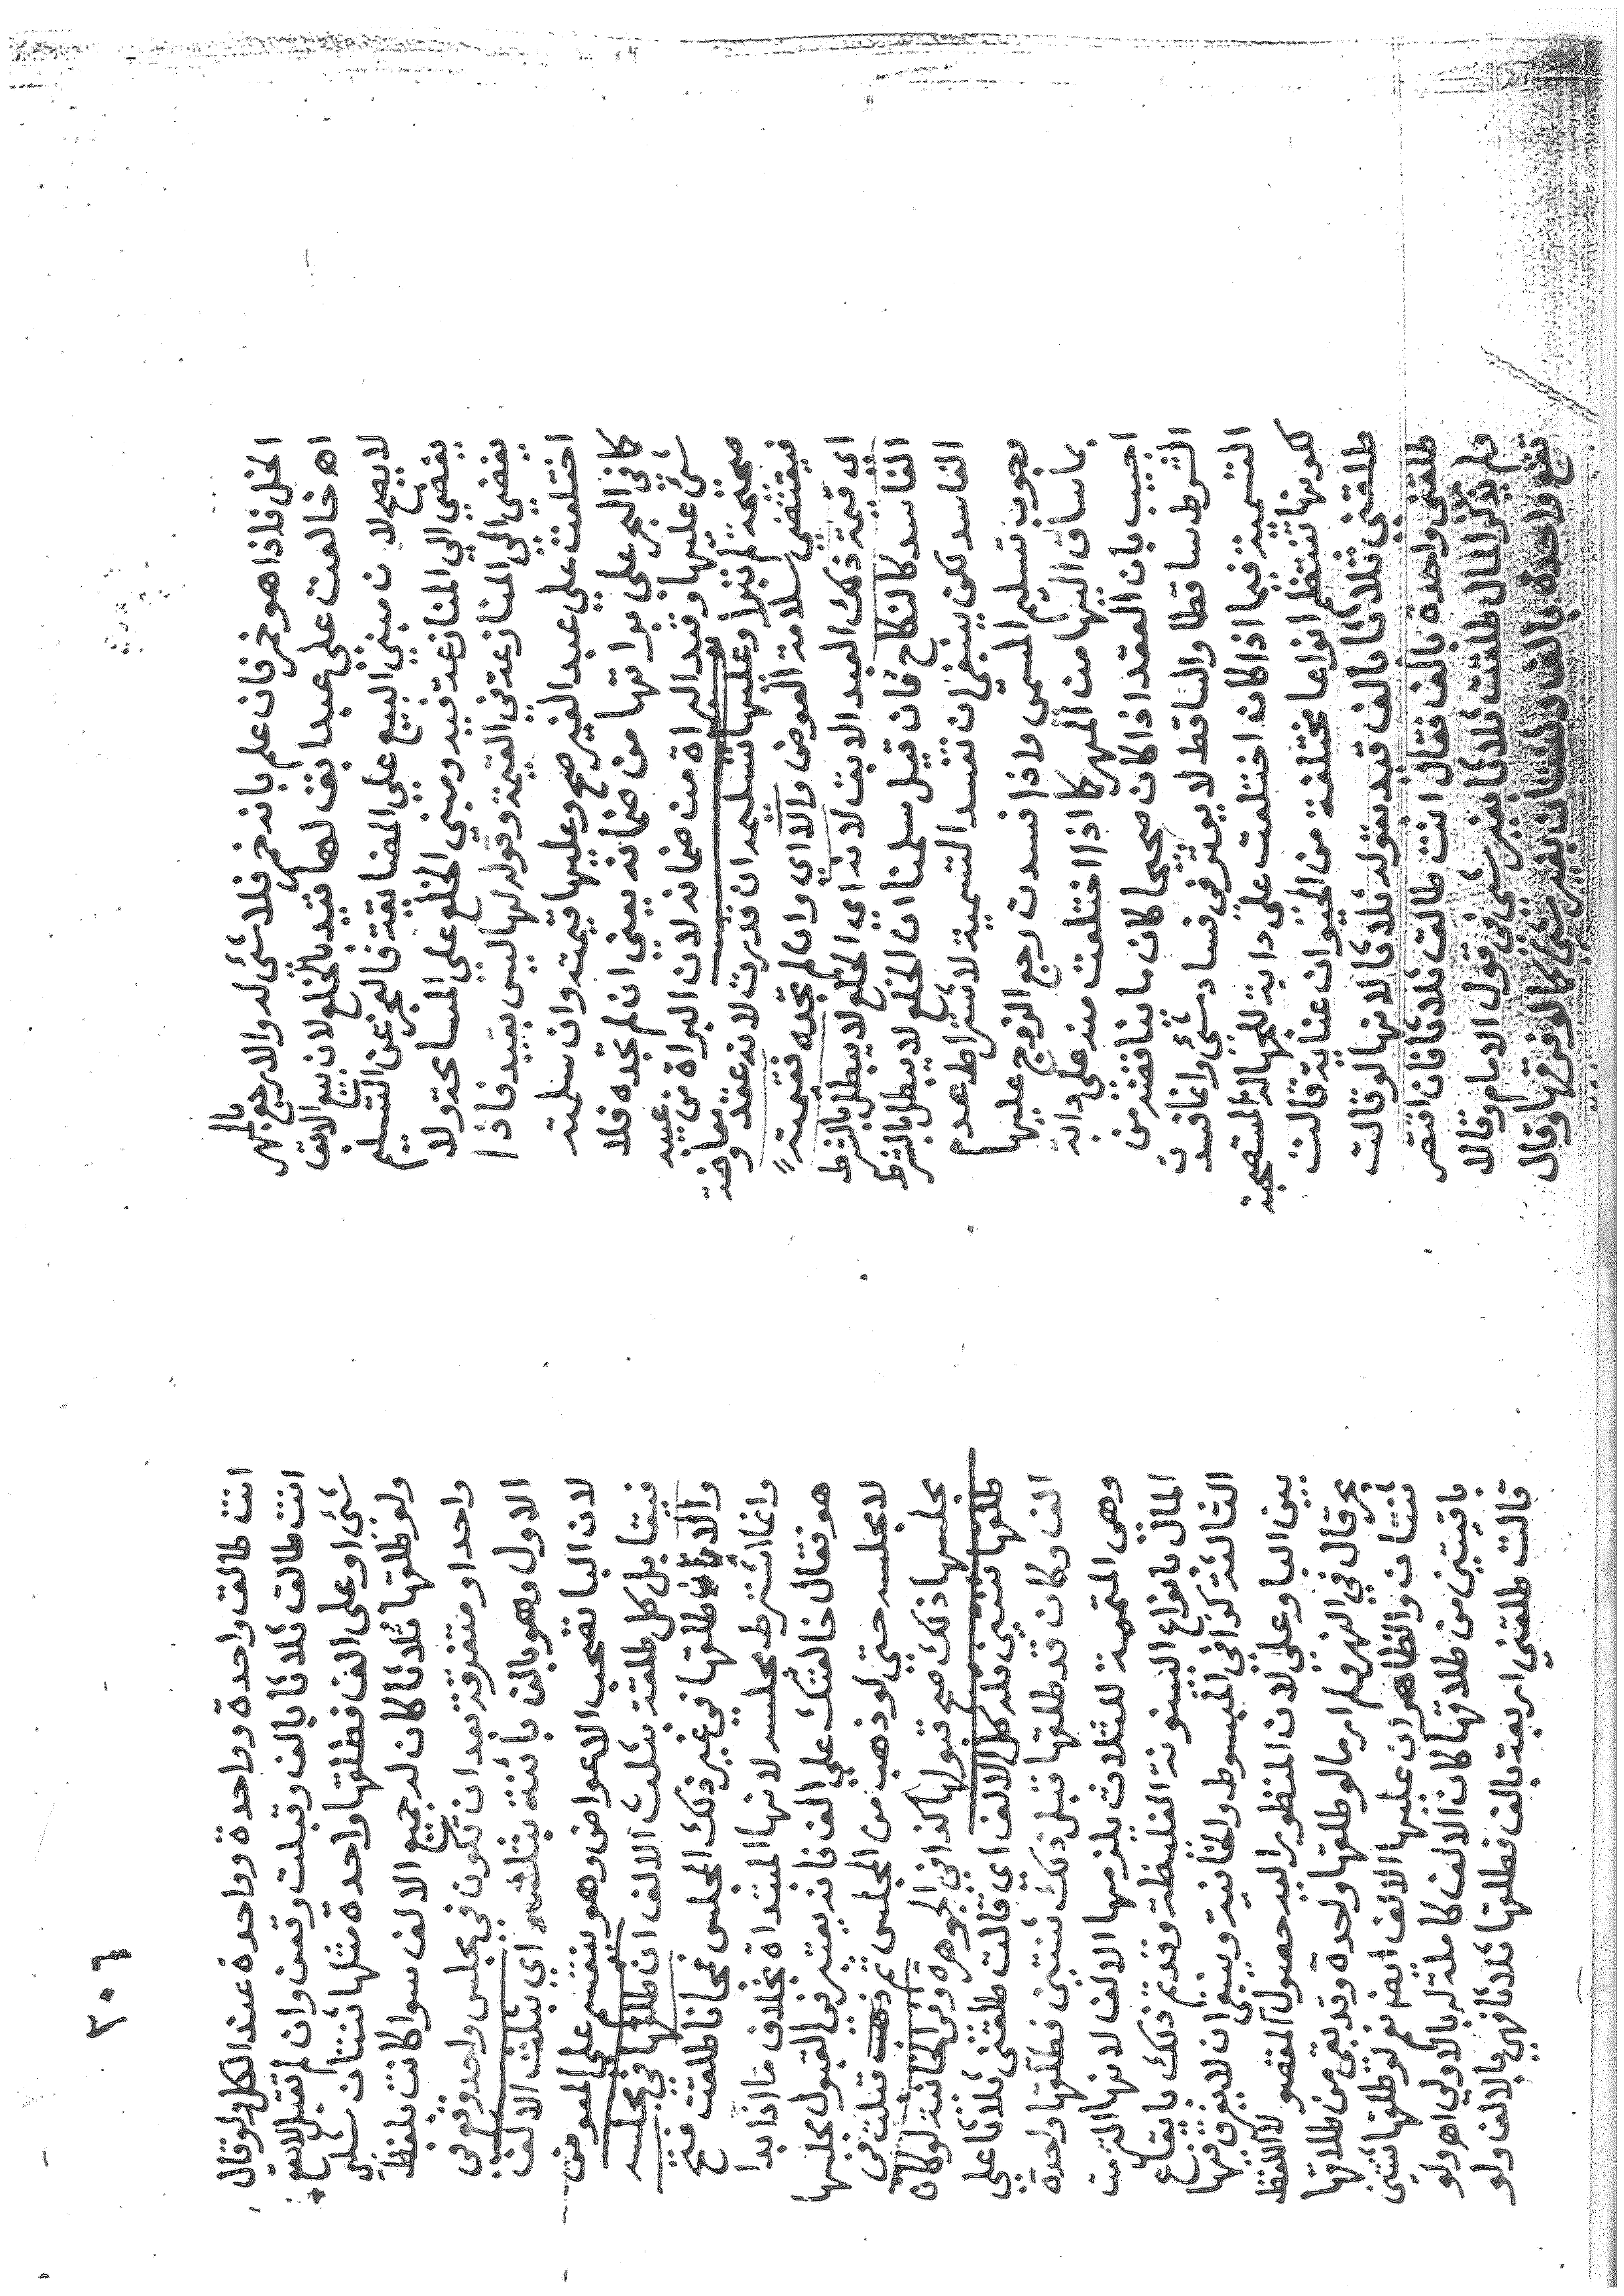 الخل فاذا هو خمر فان علم بانه خمر فلا شئ له والا رجع بالمهر
اه خالعت على عبد ابق لها قيد بالخلع لان بيع الابق
لا يصح لا ن مبني البيع علي المضايقة فالعجز عن التسليم
يفضي الي المنازعة فيه ومبني الخلع علي المسامحة ولا
يفضي الي المنازعة في القيمة وقوله لها ليس بقيد فاذا
اختلعت علي عبد الغير صح وعليها قيمته وان سلمته
كافي البحر علي براتها من ضمانه يعني ان لم تجده فلا
شئ عليها وقيد البراة من ضمانه لان البراة من عيبه
صحيحة لم تبرا وعليها تسليمه ان قدرت لانه عقد معاوضة
فيقتضي سلامة العوض والا اي وان لم تجده فقيمته
اي قيمة ذلك العبد الابق لانه اي الخلع لا يبطل بالشرط
الفاسد كالنكاح فان قيل سلمنا ان الخلع لا يبطل بالشرط
الفاسد لكن ينبغي ان تفسد التسمية لاشتراط عدم
وجوب تسليم المسمي واذا فسدت رجع الزوج عليها
بما ساق اليها من المهر كما اذا اختلعت منه على دابة
اجيب بان العقد اذا كان صحيحا كان ما يناقضه من
الشرط ساقطا والساقط لا يؤثر في فساد شئ وانما فسدت
التسمية فيما اذا كانه اختلعت علي دابة للجهالة المستصحبة
كونها تنتظم انواعا مختلفة من الحيوان عناية قالت
طلقني ثلاثا بالف قيد بقوله ثلاثا لانها لو قالت
طلقني واحدة بالف فقال انت طالق ثلاثا فان اقتصر
ولم يذكر المال طلقت ثلاثا بغير شئ في قول الامام وقالا
تقع واحدة بالف وثنتان بغير شئ كما لو فرقها وقال
انت طالق واحدة وواحدة وواحدة عند الكل ولو قال
انت طالق ثلاثا بالف وقبلت وقعن وان لم تقبل لا يقع
شئ او على الف فطلقها واحدة مثلها ثنتان شلبي
ولو طلقها ثلاثا كان له جميع الالف سوا كانت بلفظ
واحد او متفرقة بعد ان تكون في مجلس واحد وقع في
الاول وهو بالف بائنة بثلثه اي بثلث الالف
لان البا تصحب الاعواض وهو ينقسم علي المعوض
فيقابل كل طلقة بثلث الالف ان طلقها في مجلسه
والا بان طلقها في غير ذلك المجلس فمجانا طلقت فتح
وانما اشترط مجلسه لانها المبتداة بخلاف ما اذا بدا
هو فقال خالعتك علي الف فانه يعتبر في القبول مجلسها
لا مجلسه حتي لو ذهب من المجلس ثم قبلت في
مجلسها ذلك صح قبولها كذا في الجوهرة وفي الخانية لو كان
طلقها ثنتين فله كل الالف اي قالت طلقني ثلاثا علي
الف وكان قد طلقها قبل ذلك ثنتين فطلقها واحدة
وهي المتممة للثلاث يلزمها الالف لانها التزمت
المال بايقاع البينونة الغليظة وقد تم ذلك بايقاع
الثالثة كذا في المبسوط والخانية وينبغي ان لا يفرق فيها
بين البا وعلي لان المنظور اليه حصول المقصود لا اللفظ
بحر قال في النهر ولم ار ما لو طلقها واحدة وقد بقي من طلاقها
ثنتان والظاهر ان عليها الالف ايضا نعم لو طلقها ثنتين
باقيتين من طلاقها كان الالف كاملة له بالاولي اه ولو
قالت طلقني اربعة بالف فطلقها ثلاثا فهي بالالف ولو
٢٠٦